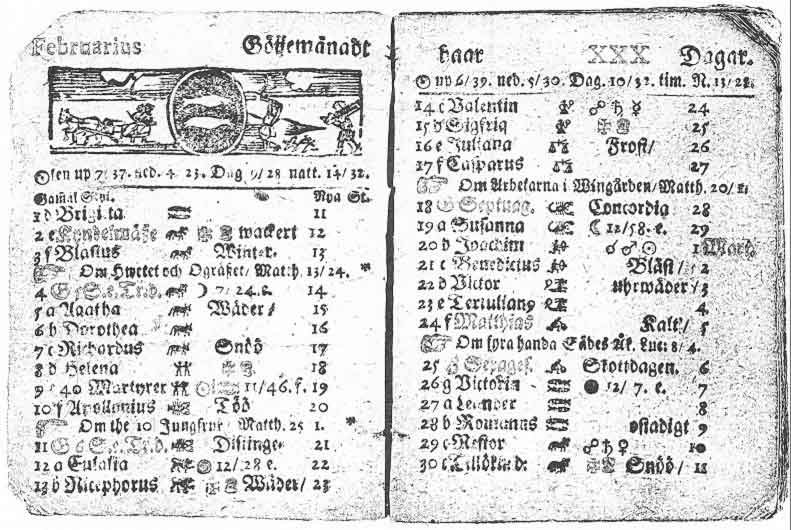 Februarius Göijemånadt
Solen up 7/37. ned. 4. 23. Dag 9/28 natt. 14/32.
Gamal Styl. Nya St.
1 d Brigitta 11
2 e Kyndelmässe wackert 12
3 f Blasius Winter. 13
Om Hwetet och Ogräset/ Matth. 13/24. *
4 G 5 S. e. Tr. d. 7/24. e. 14
5 a Agatha Wäder/ 15
6 b Dorothea 16
7 c Richardus Snöö 17
8 d Helena 18
9 e 40 Martyrer 11/46. f. 19
10 f Apollonius Töö 20
Om the 10 Jungfrur/ Matth. 25 1. *
11 G 6 S. e. Tr. d. Distinge 21
12 a Eulalia 12/28 e. 22
13 b Nicephorus Wäder/ 23
haar XXX Dagar.
up 6/39. ned. 5/30. Dag. 10/32. tim. N. 13/28.
14 c Valentin ☍ ♄ ☿ 24
15 d Sigfrid 25
16 e Juliana Frost/ 26
17 f Casparus 27
Om Arbetarna i Wingården/ Matth. 20/1.
18 G Septuag. Concordia 28
19 a Susanna ☾ 12/58. e. 29
20 b Joachim ☌ ♂ ☉ 1 Mart.
21 c Benedictus Bläst/ 2
22 d Victor uhrwäder/ 3
23 e Tertuliang 4
24 f Matthias Kalt/ 5
Om fyra handa Sädes Åk. Luc: 8/4.
25 G Sexages. Skottdagen. 6
26 g Victorin ● 12/7. e. 7
27 a Leander 8
28 b Romanus ostadigt 9
29 c Nestor ☍ ♄ ♀ 10
30 c Snöö/ 11